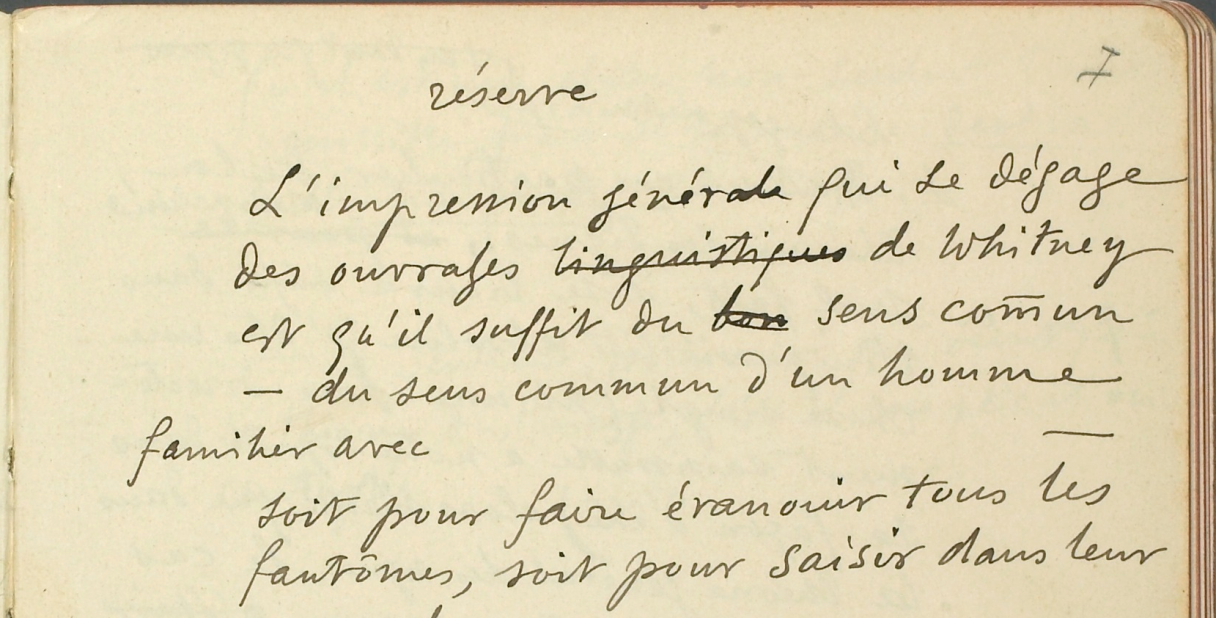 7
réserve
L'impression générale qui se dégage
des ouvrages linguistiques de Whitney
est qu'il suffit du bon sens com̄un
— du sens commun d'un homme
familier avec —
soit pour faire évanouir tous les
fantômes, soit pour saisir dans leur